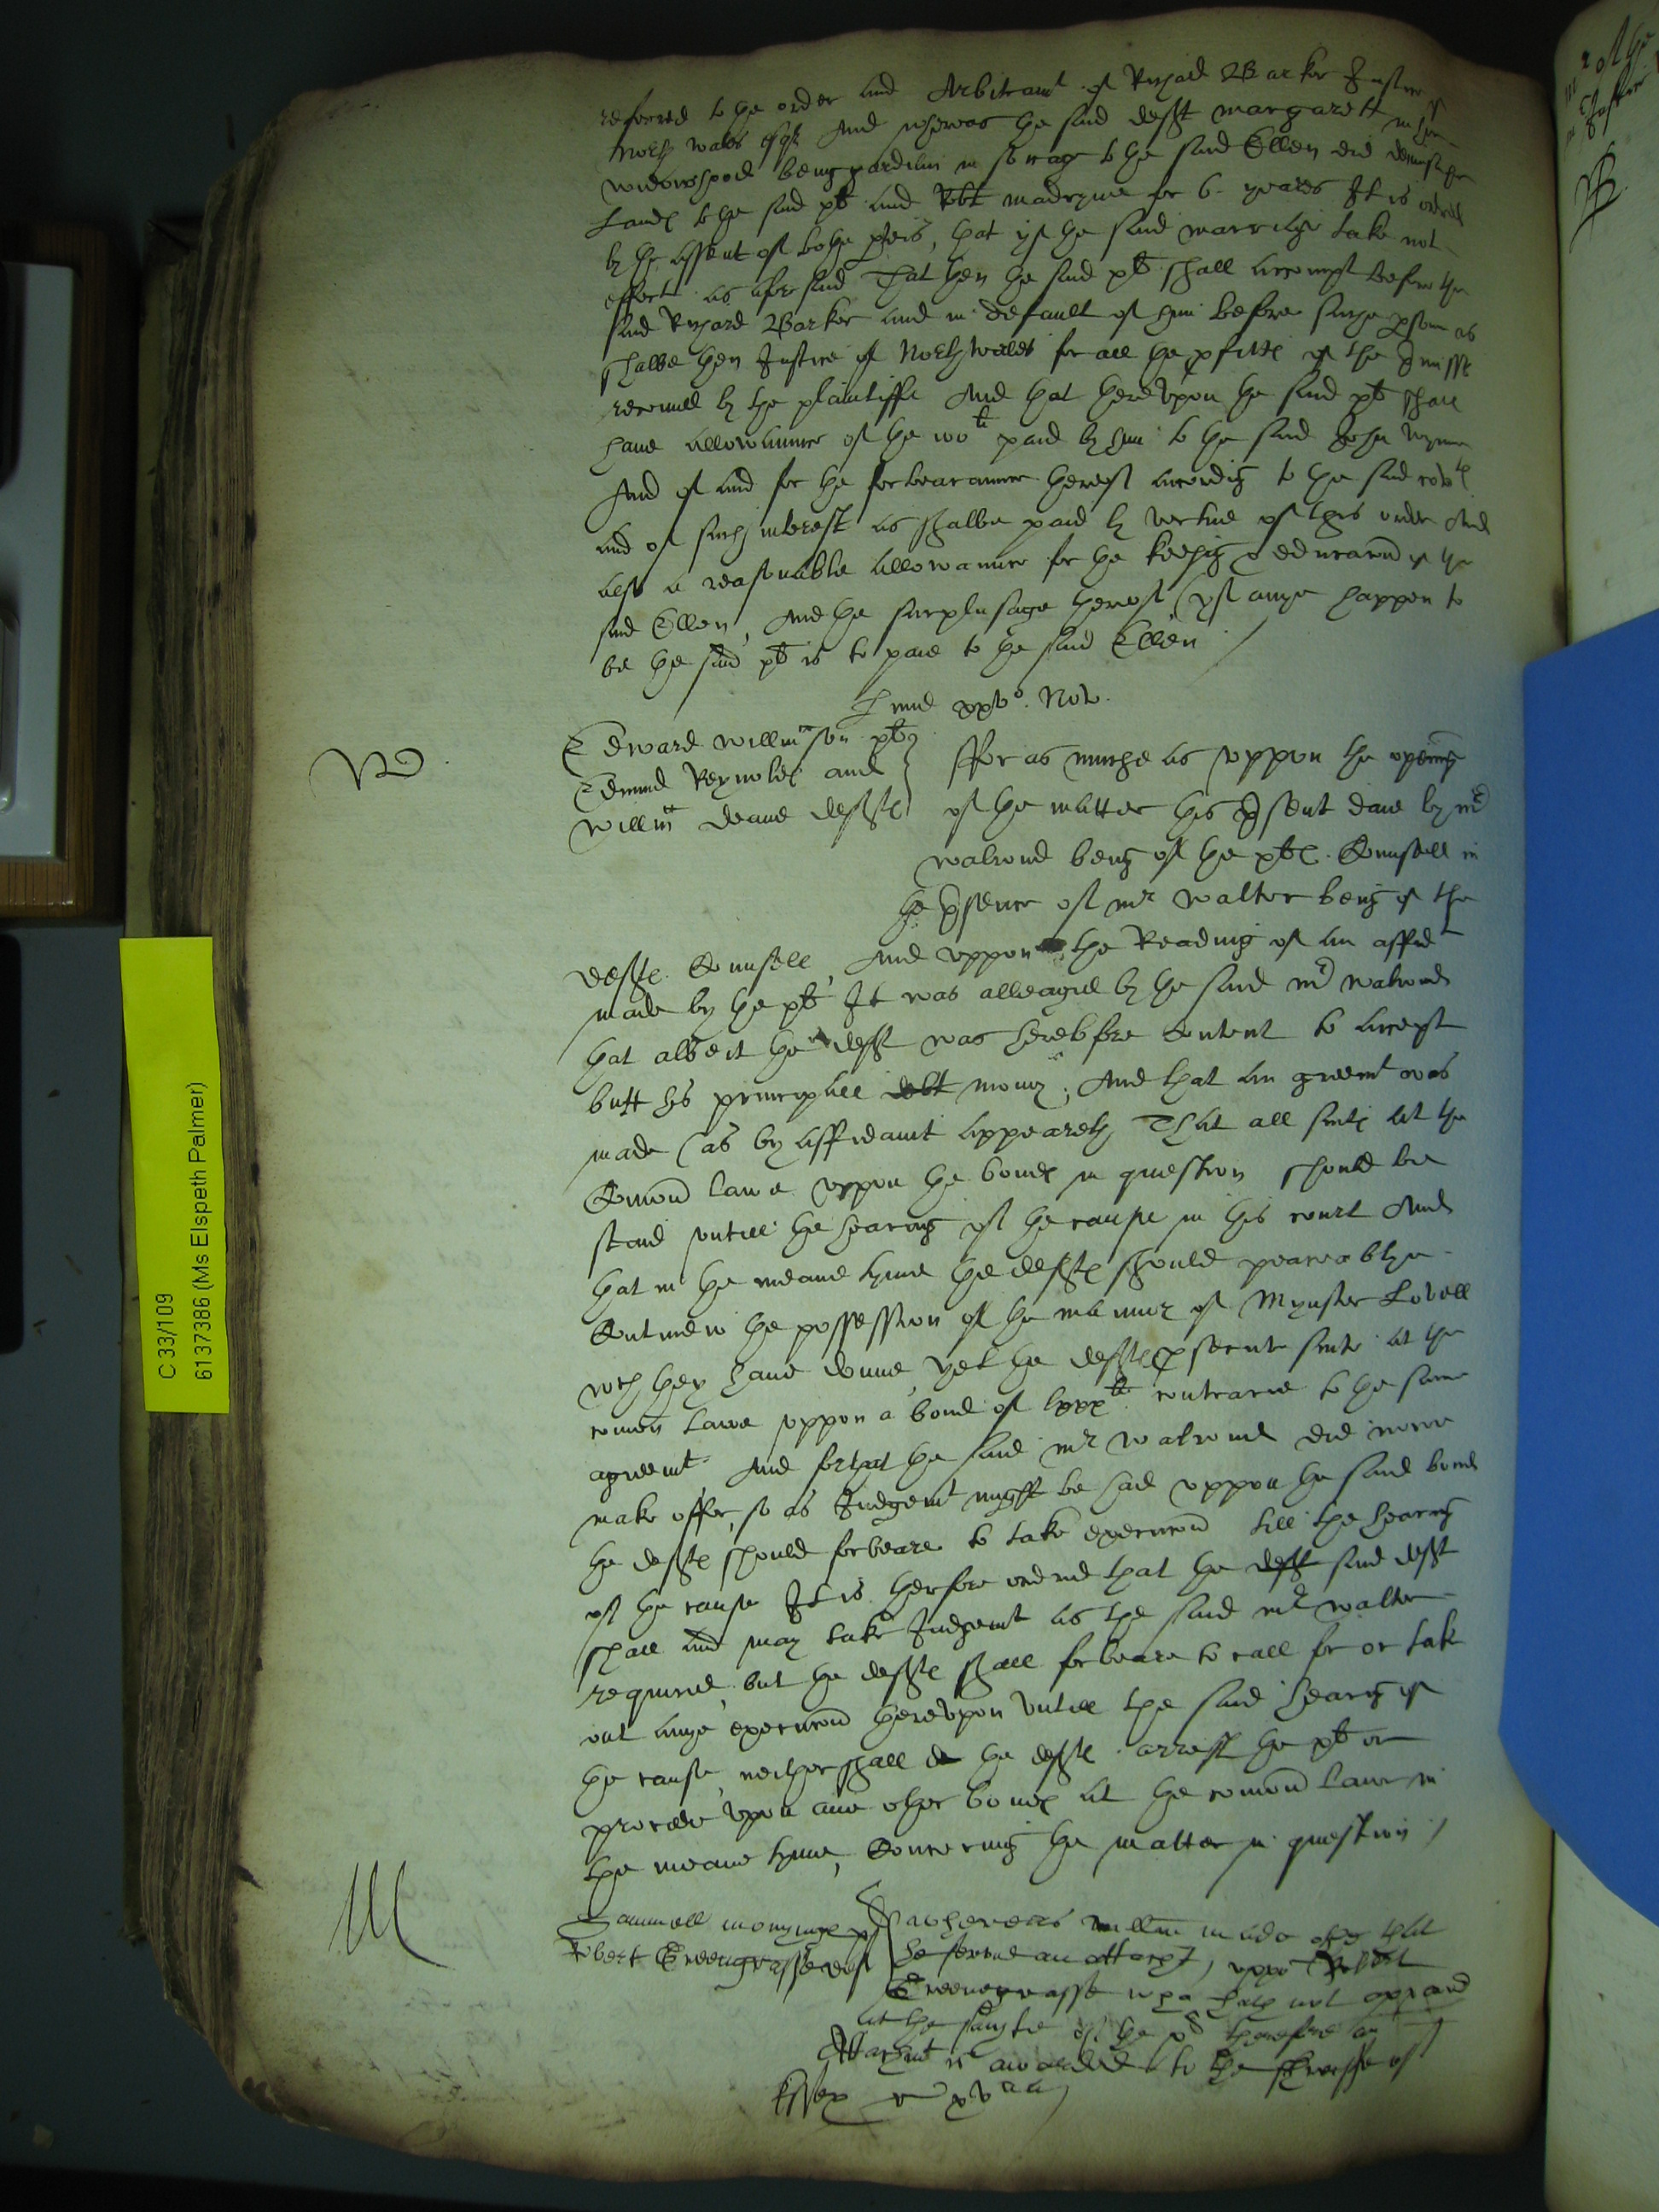 referred to the order and Arbitramt of Richard Barker Justice of
North wales esqr And whereas the said deft margarett in her
widowhood being gardian in socage to the said Ellen did demise the
Landes to the said plt and Robt madryne for 6 yeares It is ordred
by the assent of bothe pties, that yf the said marriage take not
effect as aforesaid That then the said plt shall accompt before the
said Richard Barker and in default of him before suche pson as
shalbe then Justice of North wales for all the pfittes of the pmisses
receaued by the plaintiffe And that therevpon the said plt shall
haue allowaunce of the paid by him to the said John wynne
And of and for the forbearaunce therof according to the said
and of such interest as shalbe paid by vertue of this order And
also a reasonable allowance for the keeping & educacon of the
said Ellen, And the surplusage therof (yf anye happen to
be the said plt is to paie to the said Ellen /
Lune xxvo. Nov.
Edward willmson plt
Edmund Reynoldes and
willm deane deftes
ffor as muche as vppon the opening
of the matter this psent daie by mr
walrond being of the pltes Counsell in
the psence of mr walter being of the
deftes Counsell, And vppon the Reading of an affidt
made by the plt It was alleaged by the said mr walrond
that albeit the deft was heretofore content to accept
butt his principall debt money, And that an greemt was
made (as by affidauit appeareth That all suites at the
Comon lawe vppon the bondes in question should bee
staid vntill the hearing of the cause in this court And
that in the meane tyme the deftes should peaceablye
Continew the possession of the mannor of Mynster Lovell
wch they haue donne, yet the deftes psecute suite at the
comon lawe vppon a bond of lxxxli contrarie to the same
agreemt And forthat the said mr walrond did nowe
make offer, so as Judgemt might be had vppon the said bond
the deftes should forbeare to take execucon till the hearing
of the cause It is therfore ordred that the deft said deft
shall and may take Judgemt as the said mr walter
required, but the deftes shall forbeare to call for or take
out anye execucon therevpon vntill the said hearing of
the cause, neither shall the deftes arrest the plt or
proceede vpon anie other bondes at the comon lawe in
the meane tyme, Concerning the matter in question /
Samuell plt
Robert Greengrasse deft
whereas willm made othe that
he serued an attacht, vppo Robert
Greenegrasse who hath not appeared
at the suyte of the plt therefore an
Attachmt is awarded to the shreiffe of
Essex
C 33/109
6137386 (Ms Elspeth Palmer)